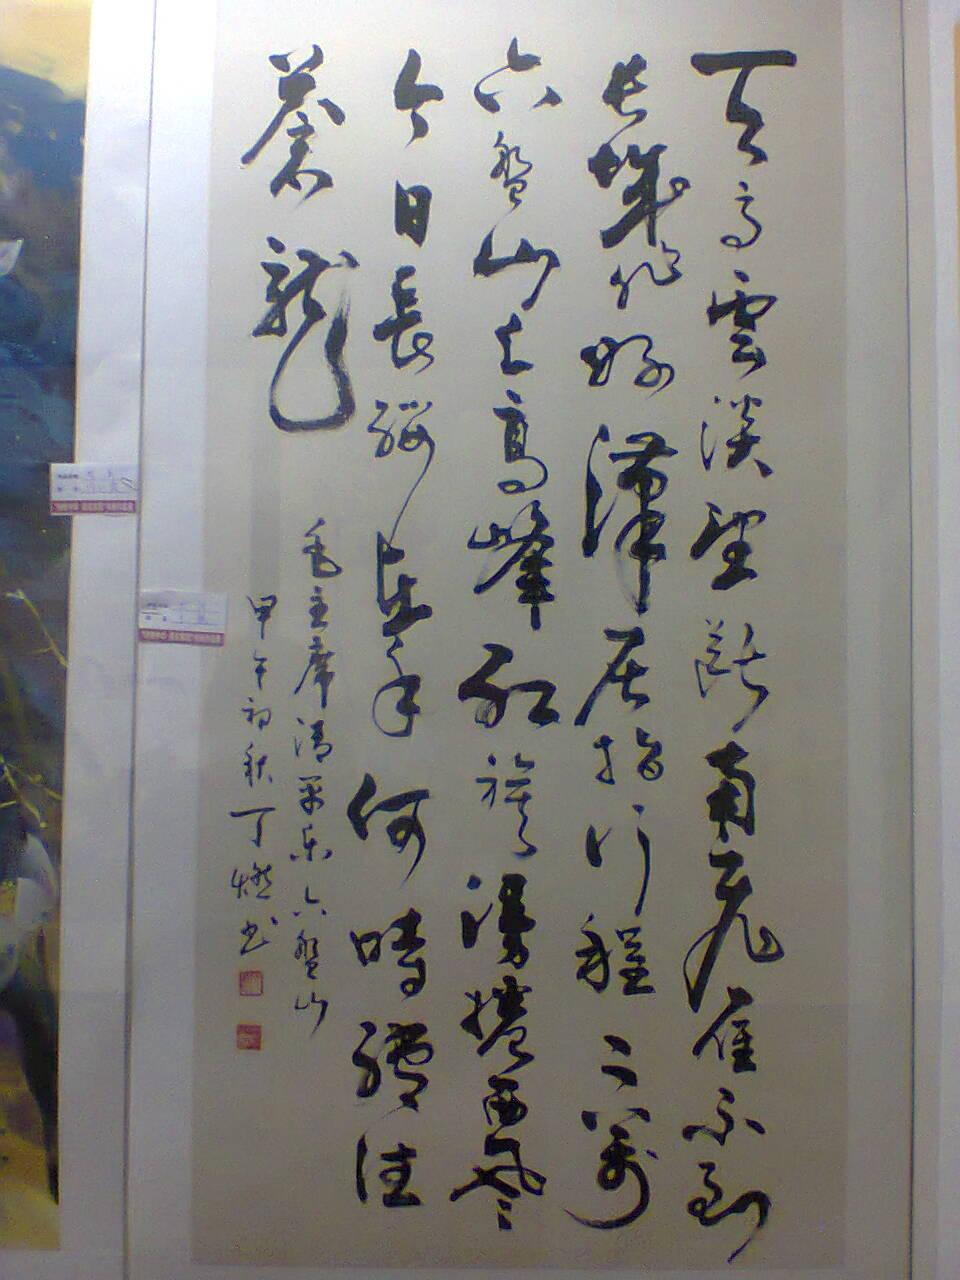 天高雲淡望斷南飛雁不到
長城非好漢屈指行程二萬
六盤山上高峰紅旗漫捲西風
今日長纓在手何時縛住
蒼龍
毛主席清平樂六盤山
甲午初秋丁燃书